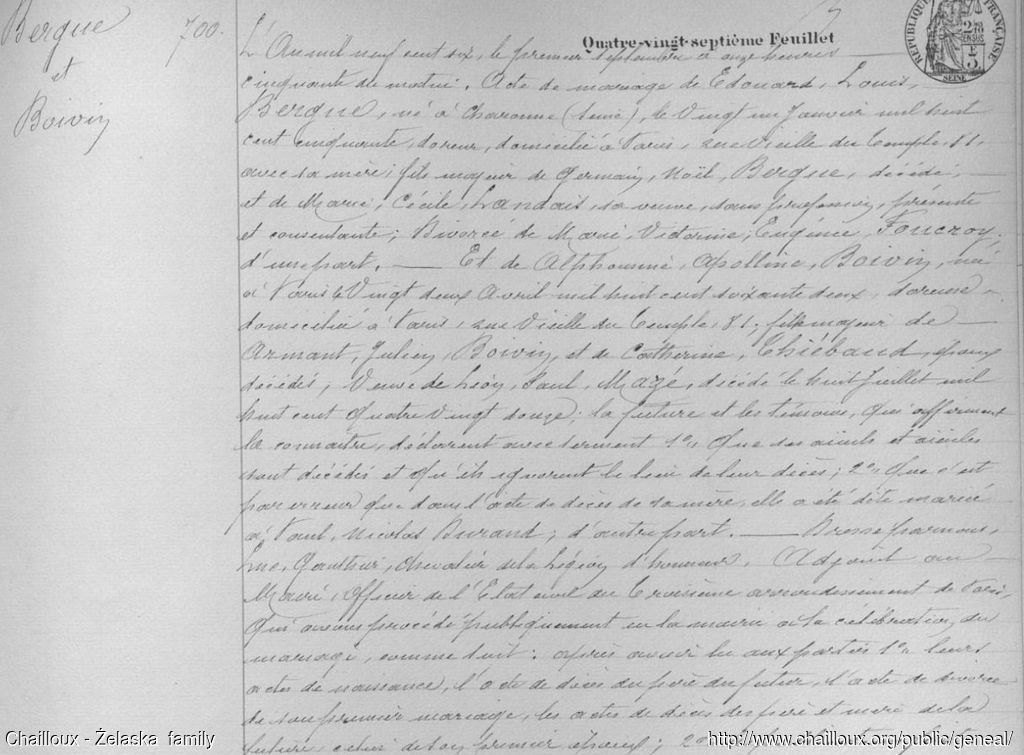 Bergue
et
Boivin
700.
Quatre-vingt-septième Feuillet
RÉPUBLIQUE FRANÇAISE
SEINE
L'An mil neuf cent six, le premier Septembre à onze heures
cinquante du matin. Acte de mariage de Edouard, Louis,
Bergue, né à Charonne (Seine), le Vingt un Janvier mil huit
cent cinquante, doreur, domicilié à Paris, rue Vieille du Temple, 81,
avec sa mère; fils majeur de Germain, Noël, Bergue, décédé,
et de Marie, Cécile, Landais, sa veuve, sans profession, présente
et consentante; Divorcé de Marie, Victorine, Eugénie, Foucroy,
d'une part. — Et de Alphonsine, Apolline, Boivin, née
à Paris le Vingt deux Avril mil huit cent soixante deux, doreuse
domiciliée à Paris, rue Vieille du Temple, 81, fille majeure de
Armant, Julien, Boivin, et de Catherine, Thiébaud, époux
décédés; Veuve de Léon, Paul, Mazé, décédé le huit Juillet mil
huit cent quatre vingt douze; la future et les témoins, qui affirment
la connaître, déclarent avec serment 1° Que ses aïeuls et aïeules
sont décédés et qu'ils ignorent le lieu de leur décès; 2° Que c'est
par erreur que dans l'acte de décès de sa mère, elle a été dite mariée
à Paul, Nicolas Durand; d'autre part. — Dressé par nous,
Luc, Gauthier, Chevalier de la Légion d'honneur, Adjoint au
Maire, Officier de l'Etat civil du Troisième arrondissement de Paris,
qui avons procédé publiquement en la mairie à la célébration du
mariage, comme suit: après avoir lu aux parties 1° leurs
actes de naissance, l'acte de décès du père du futur, l'acte de divorce
de son premier mariage, les actes de décès des père et mère de la
future, celui de son premier époux; 2°
Chailloux - Żelaska family
http://www.chailloux.org/public/geneal/